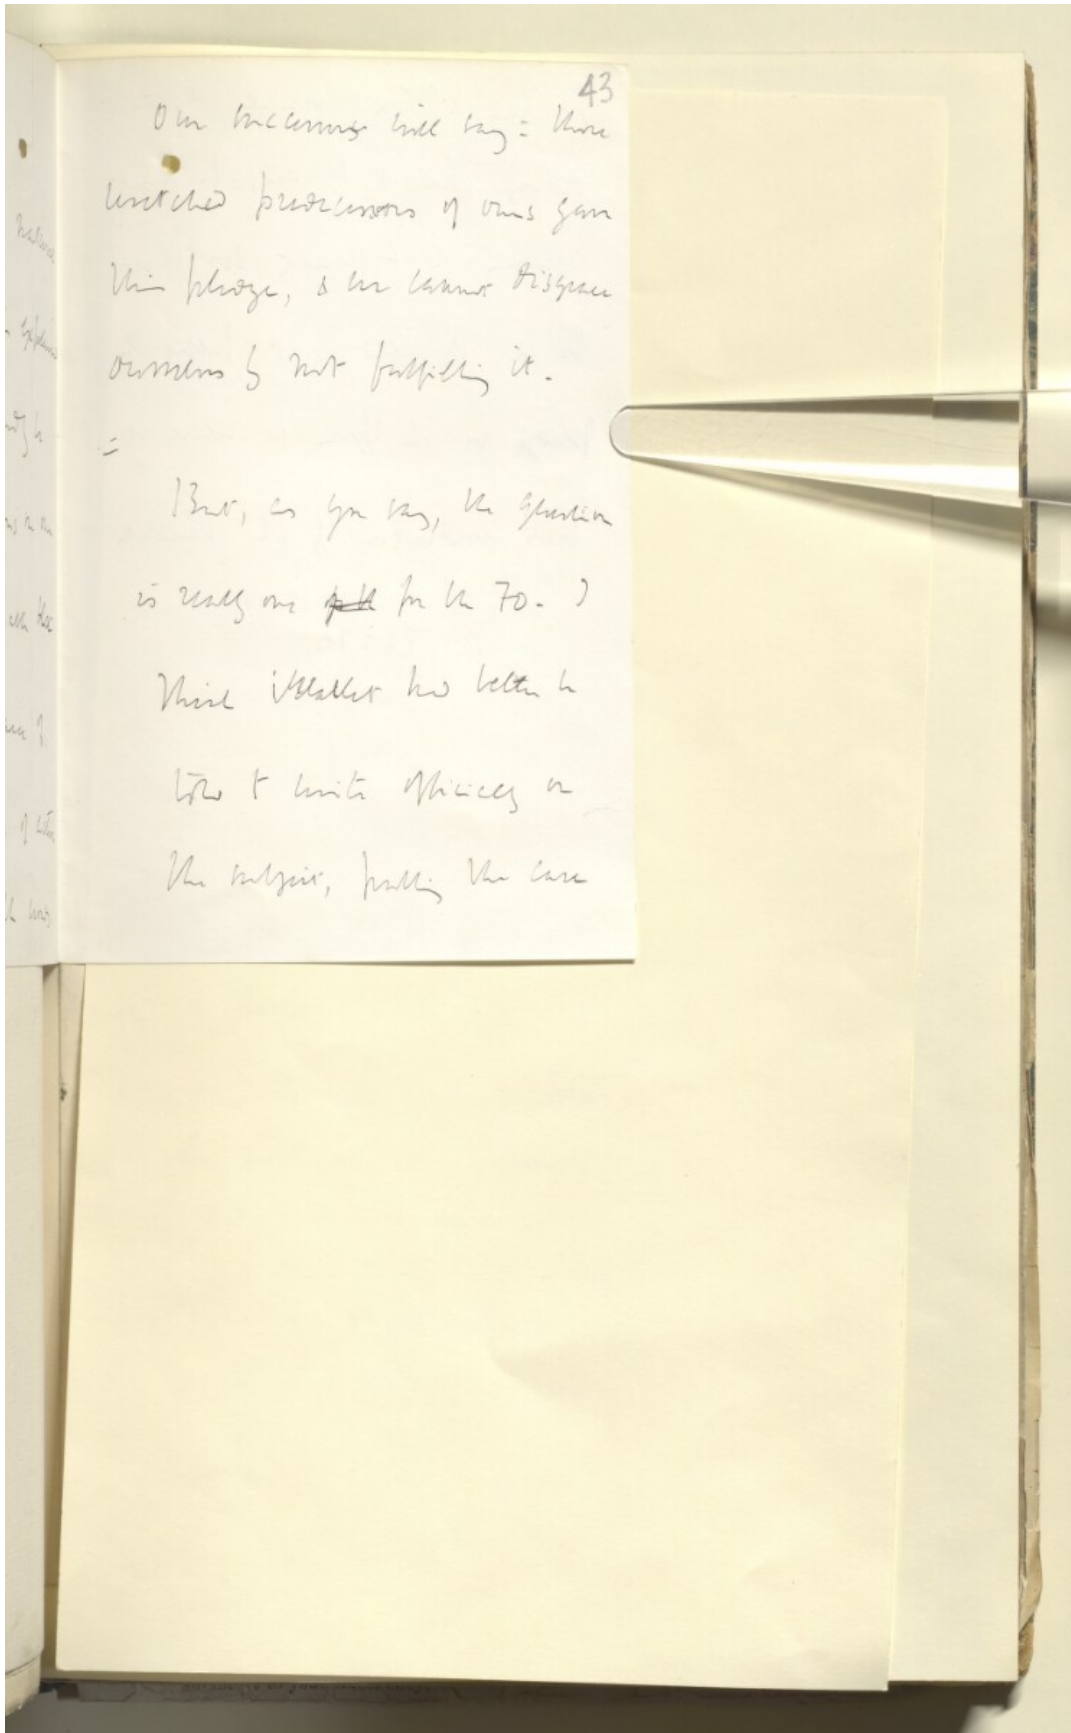 43
Our successors will say: those
wretched predecessors of ours gave
this pledge, & we cannot disgrace
ourselves by not fulfilling it.
=
But, as you say, the question
is really one for the FO. I
think Mallet had better be
told to write officially on
the subject, putting the case